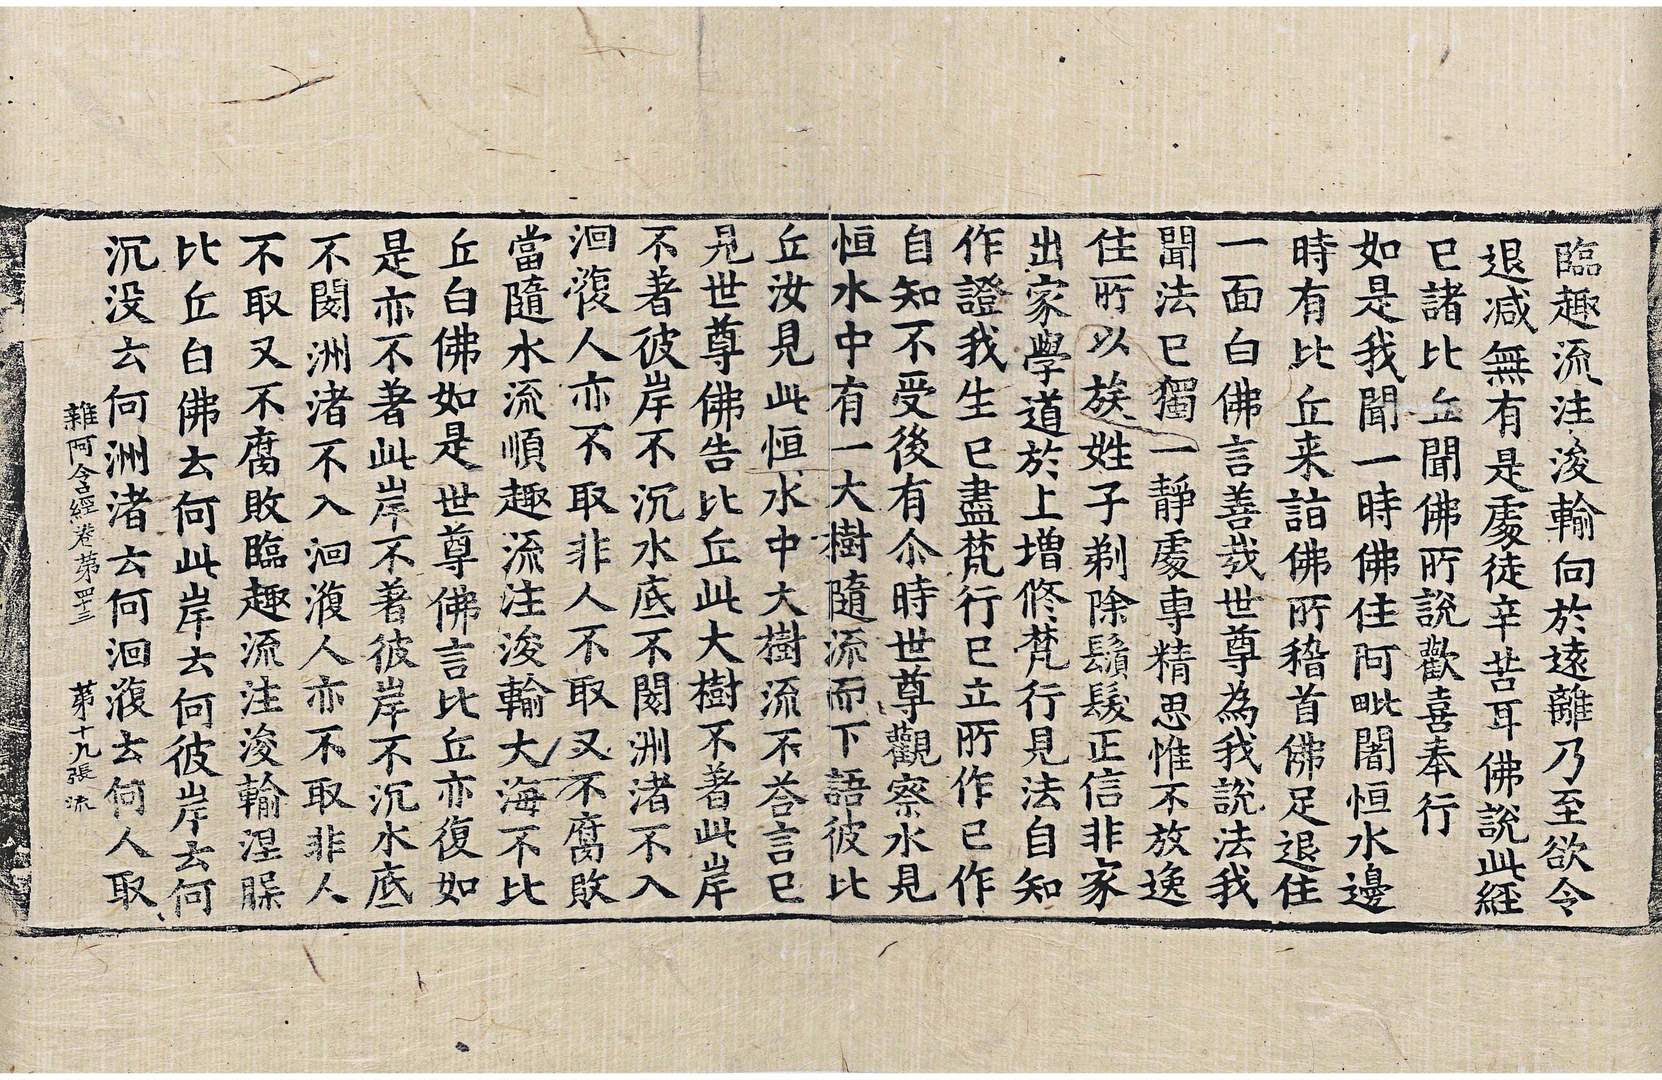 臨趣流注浚輸向於遠離乃至欲令
退减無有是處徒辛苦耳佛說此經
已諸比丘聞佛所說歡喜奉行
如是我聞一時佛住阿毗闍恒水邊
時有比丘来詣佛所稽首佛足退住
一面白佛言善哉世尊為我說法我
聞法已獨一靜處專精思惟不放逸
住所以族姓子剃除鬚髮正信非家
出家學道於上增修梵行見法自知
作證我生已盡梵行已立所作已作
自知不受後有尒時世尊觀察水見
恒水中有一大樹隨流而下語彼比
丘汝見此恒水中大樹流不荅言已
見世尊佛告比丘此大樹不著此岸
不著彼岸不沉水底不閡洲渚不入
洄澓人亦不取非人不取又不腐敗
當隨水流順趣流注浚輸大海不比
丘白佛如是世尊佛言比丘亦復如
是亦不著此岸不著彼岸不沉水底
不閡洲渚不入洄澓人亦不取非人
不取又不腐敗臨趣流注浚輸涅槃
比丘白佛云何此岸云何彼岸云何
沉没云何洲渚云何洄澓云何人取
雜阿含經卷第四十三 第十九張 流